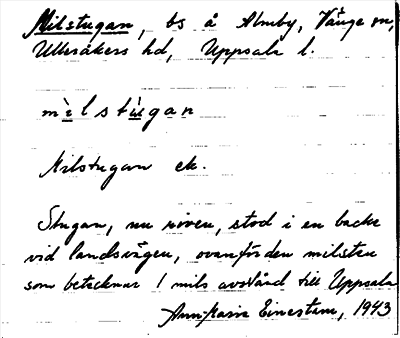 Milstugan, bs å Almby, Vänge sn,
Ulleråkers hd, Uppsala l.
mìlstùgan
Milstugan ek.
Stugan, nu riven, stod i en backe
vid landsvägen, ovanför den milsten
som betecknar 1 mils avstånd till Uppsala
Ann-Marie Einestam, 1943